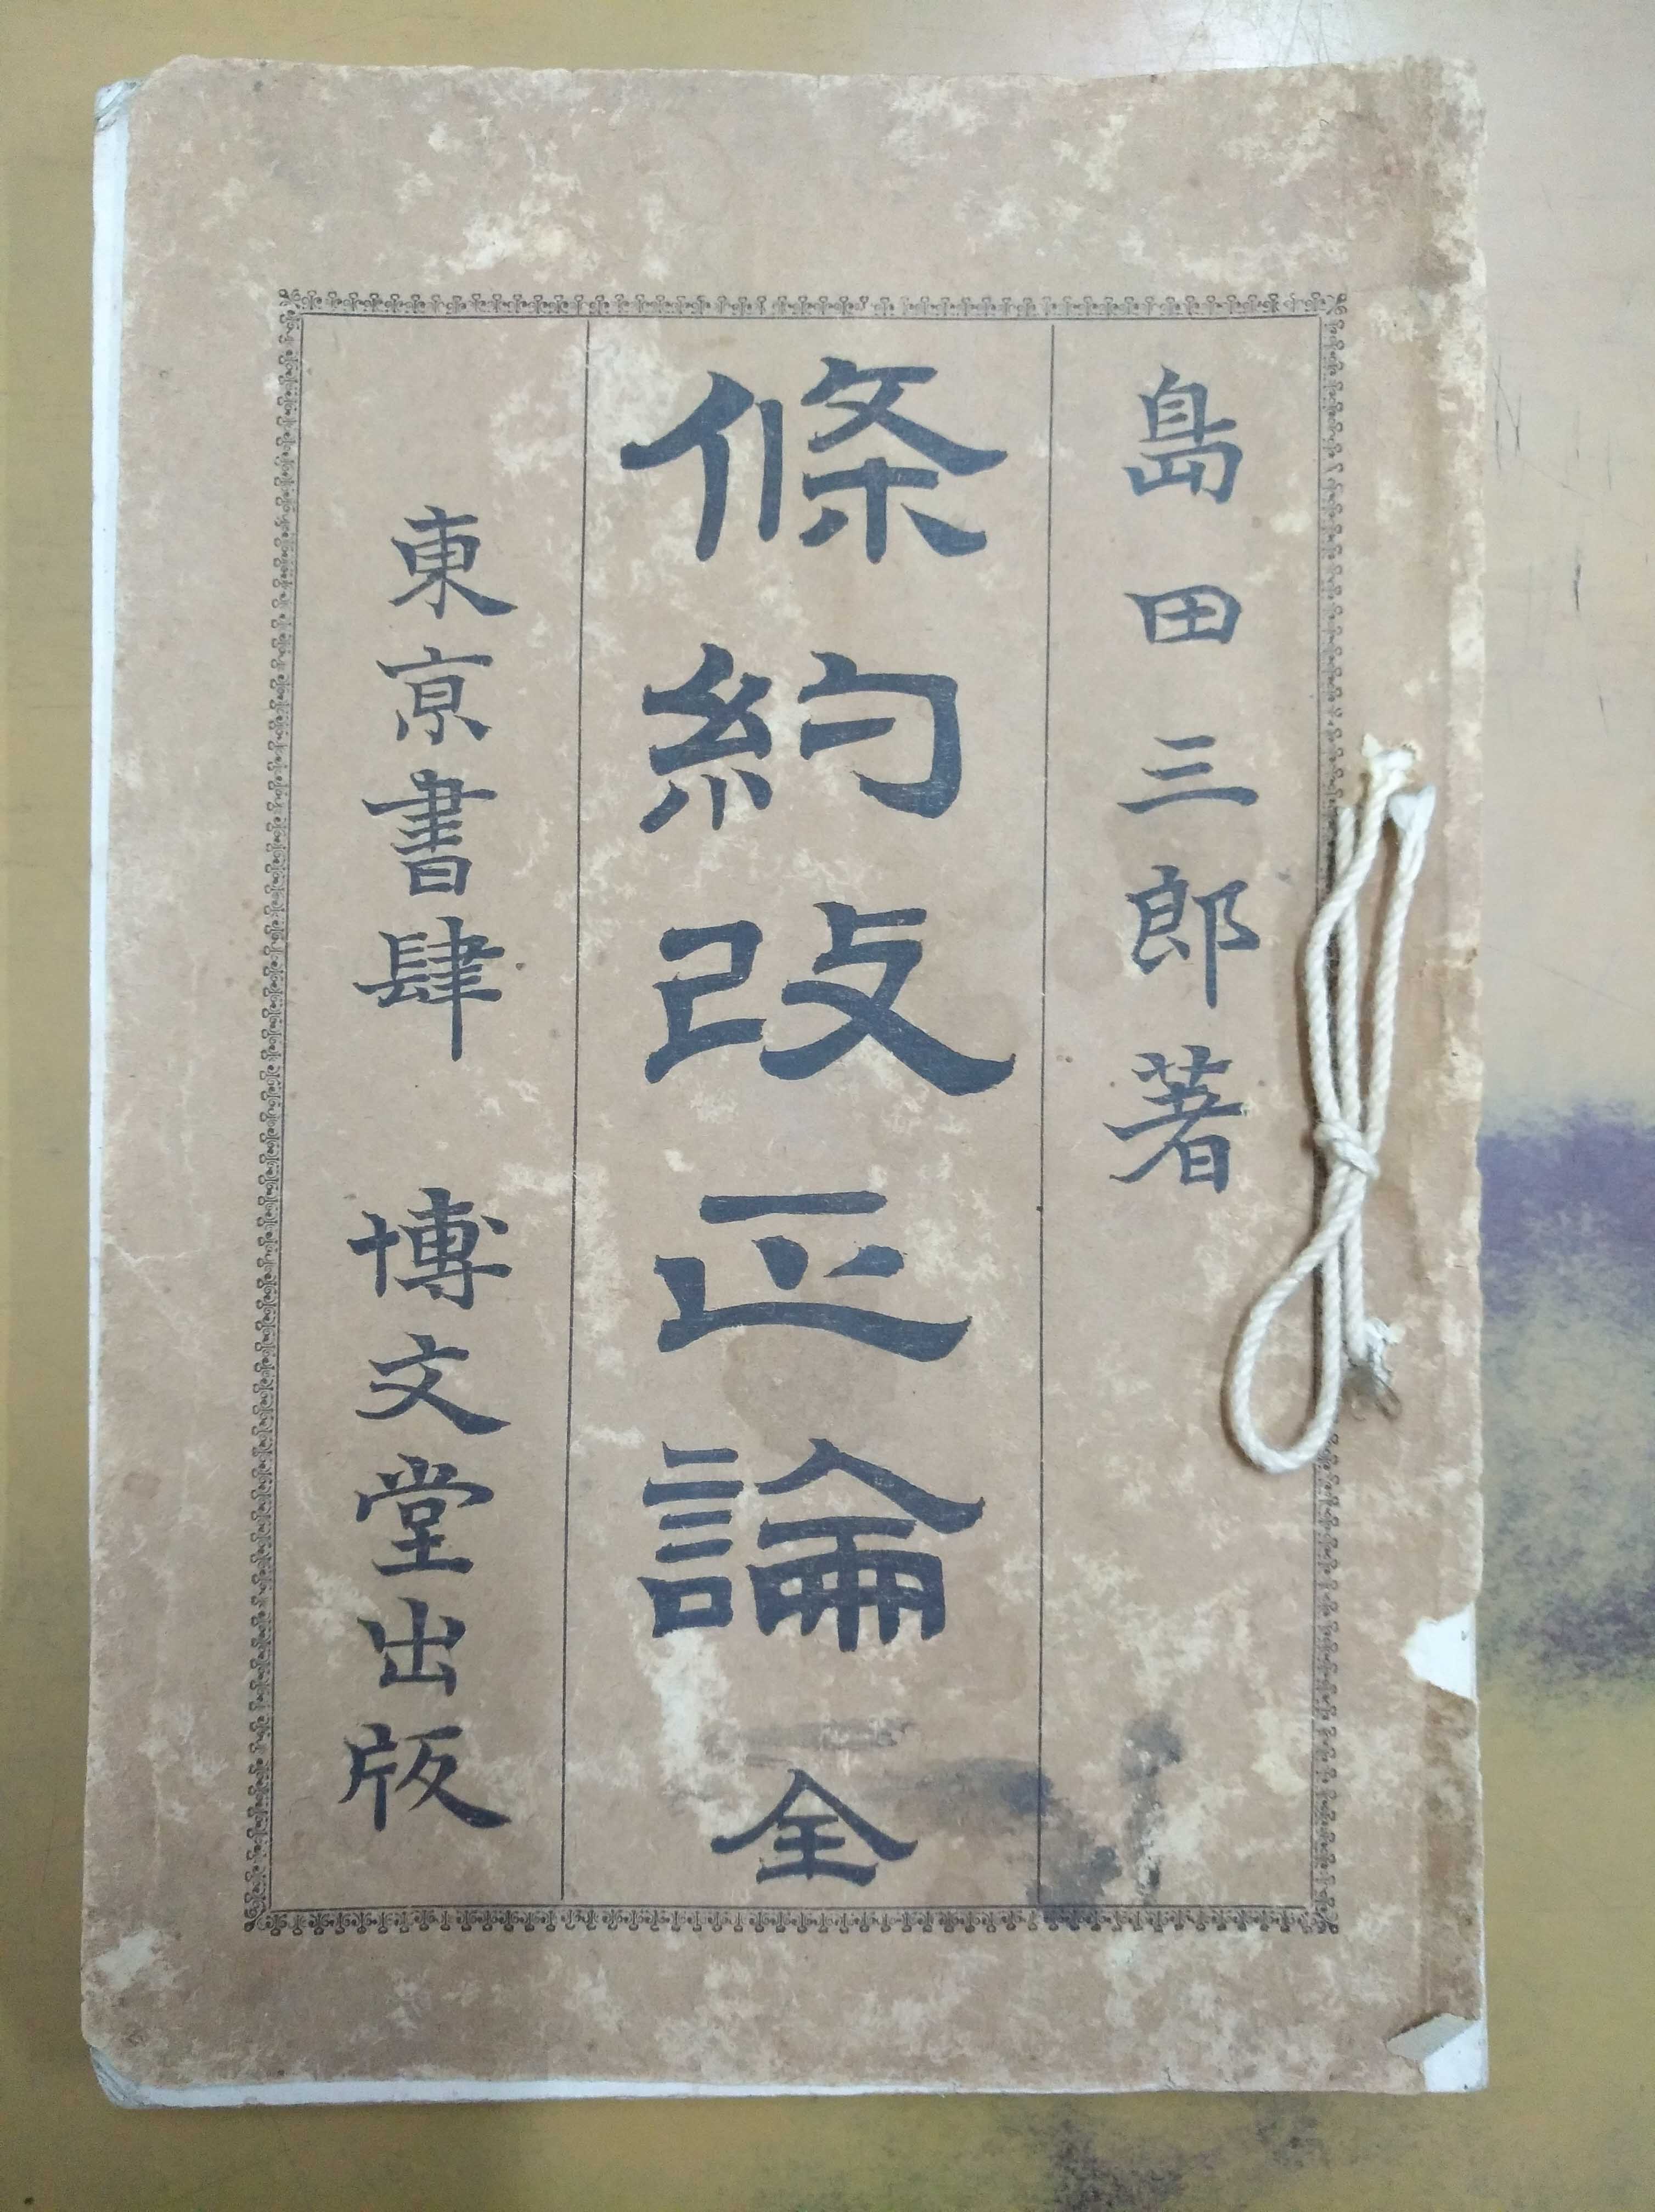 島田三郎著
條約改正論 全
東京書肆 博文堂出版